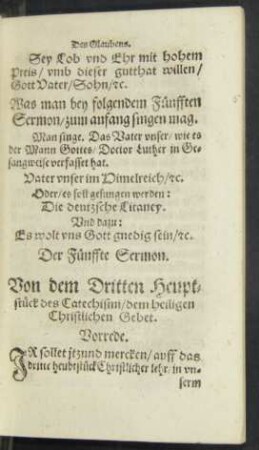 Des Glaubens.
Sey Lob vnd Ehr mit hohem
Preis/ vmb dieser gutthat willen/
Gott Vater/ Sohn/ ꝛc.
Was man bey folgendem Fünfften
Sermon/ zum anfang singen mag.
Man singe. Das Vater vnser/ wie es
der Mann Gottes/ Doctor Luther in Ge-
sangweise verfasset hat.
Vater vnser im Himelreich/ ꝛc.
Oder/ es soll gesungen werden:
Die deutzsche Litaney.
Vnd dazu:
Es wolt vns Gott gnedig sein/ ꝛc.
Der Fünffte Sermon.
Von dem Dritten Heupt-
stück des Catechismi/ dem heiligen
Christlichen Gebet.
Vorrede.
IR sollet jtzund mercken/ auff das
dritte heubtstück Christlicher lehr/ in vn-
serm